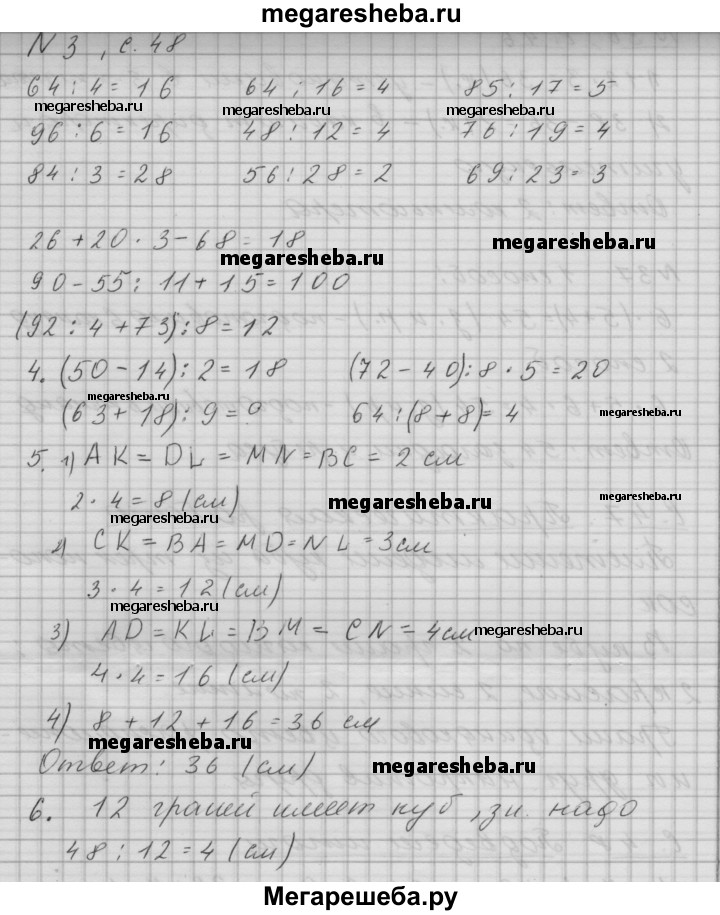 megaresheba.ru
N 3, с. 48
64 : 4 = 16 64 : 16 = 4 85 : 17 = 5
megaresheba.ru megaresheba.ru megaresheba.ru
96 : 6 = 16 48 : 12 = 4 76 : 19 = 4
84 : 3 = 28 56 : 28 = 2 69 : 23 = 3
26 + 20 · 3 - 68 = 18 megaresheba.ru
megaresheba.ru
90 - 55 : 11 + 15 = 100
(92 : 4 + 73) : 8 = 12
4. (50 - 14) : 2 = 18 (72 - 40) : 8 · 5 = 20
megaresheba.ru
(63 + 18) : 9 = 9 64 : (8 + 8) = 4 megaresheba.ru
5. 1) AK = DL = MN = BC = 2 см
2 · 4 = 8 (см) megaresheba.ru megaresheba.ru
megaresheba.ru
2) CK = BA = MD = NL = 3 см
3 · 4 = 12 (см)
megaresheba.ru
3) AD = KL = BM = CN = 4 см megaresheba.ru
4 · 4 = 16 (см)
4) 8 + 12 + 16 = 36 см
megaresheba.ru
Ответ: 36 (см) megaresheba.ru
6. 12 граней имеет куб, зн. надо
48 : 12 = 4 (см)
Мегарешеба.ру